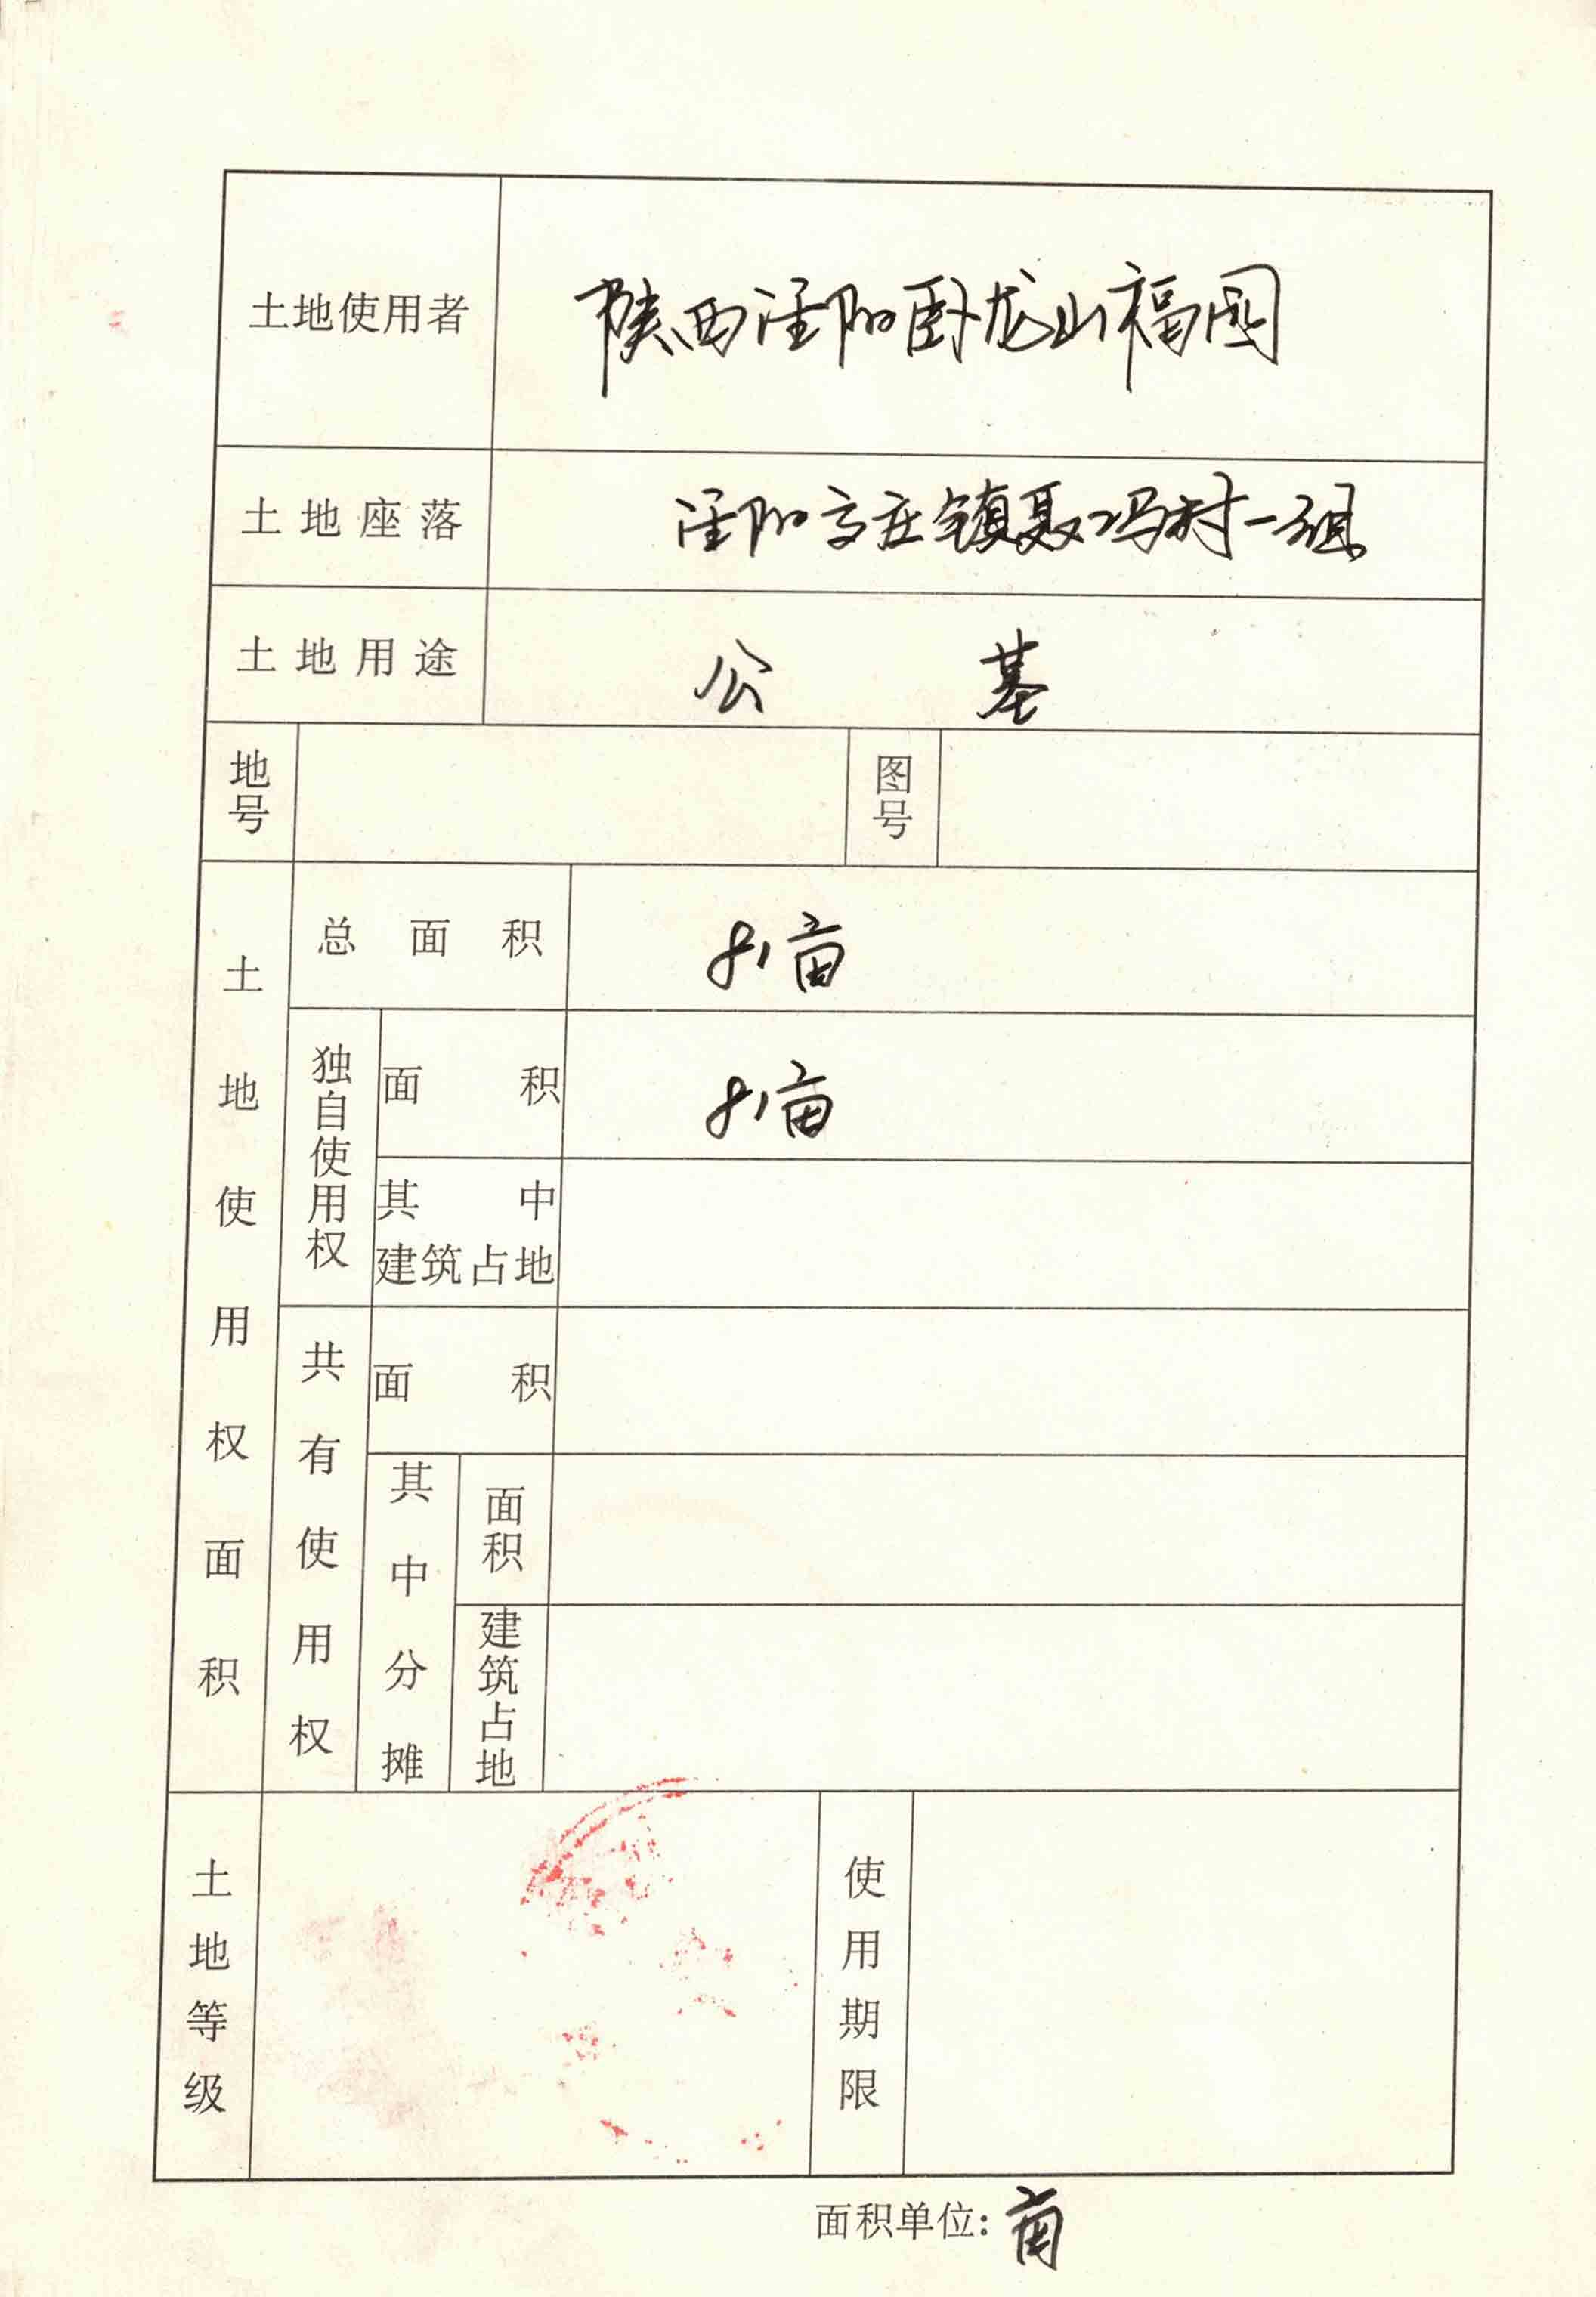 土地使用者 陕西泾阳卧龙山福园
土地座落 泾阳高庄镇聂冯村一组
土地用途 公墓
地号
图号
土地使用权面积
总面积 81亩
独自使用权
面积 81亩
其中建筑占地
共有使用权
面积
其中分摊
面积
建筑占地
土地等级
使用期限
面积单位：亩